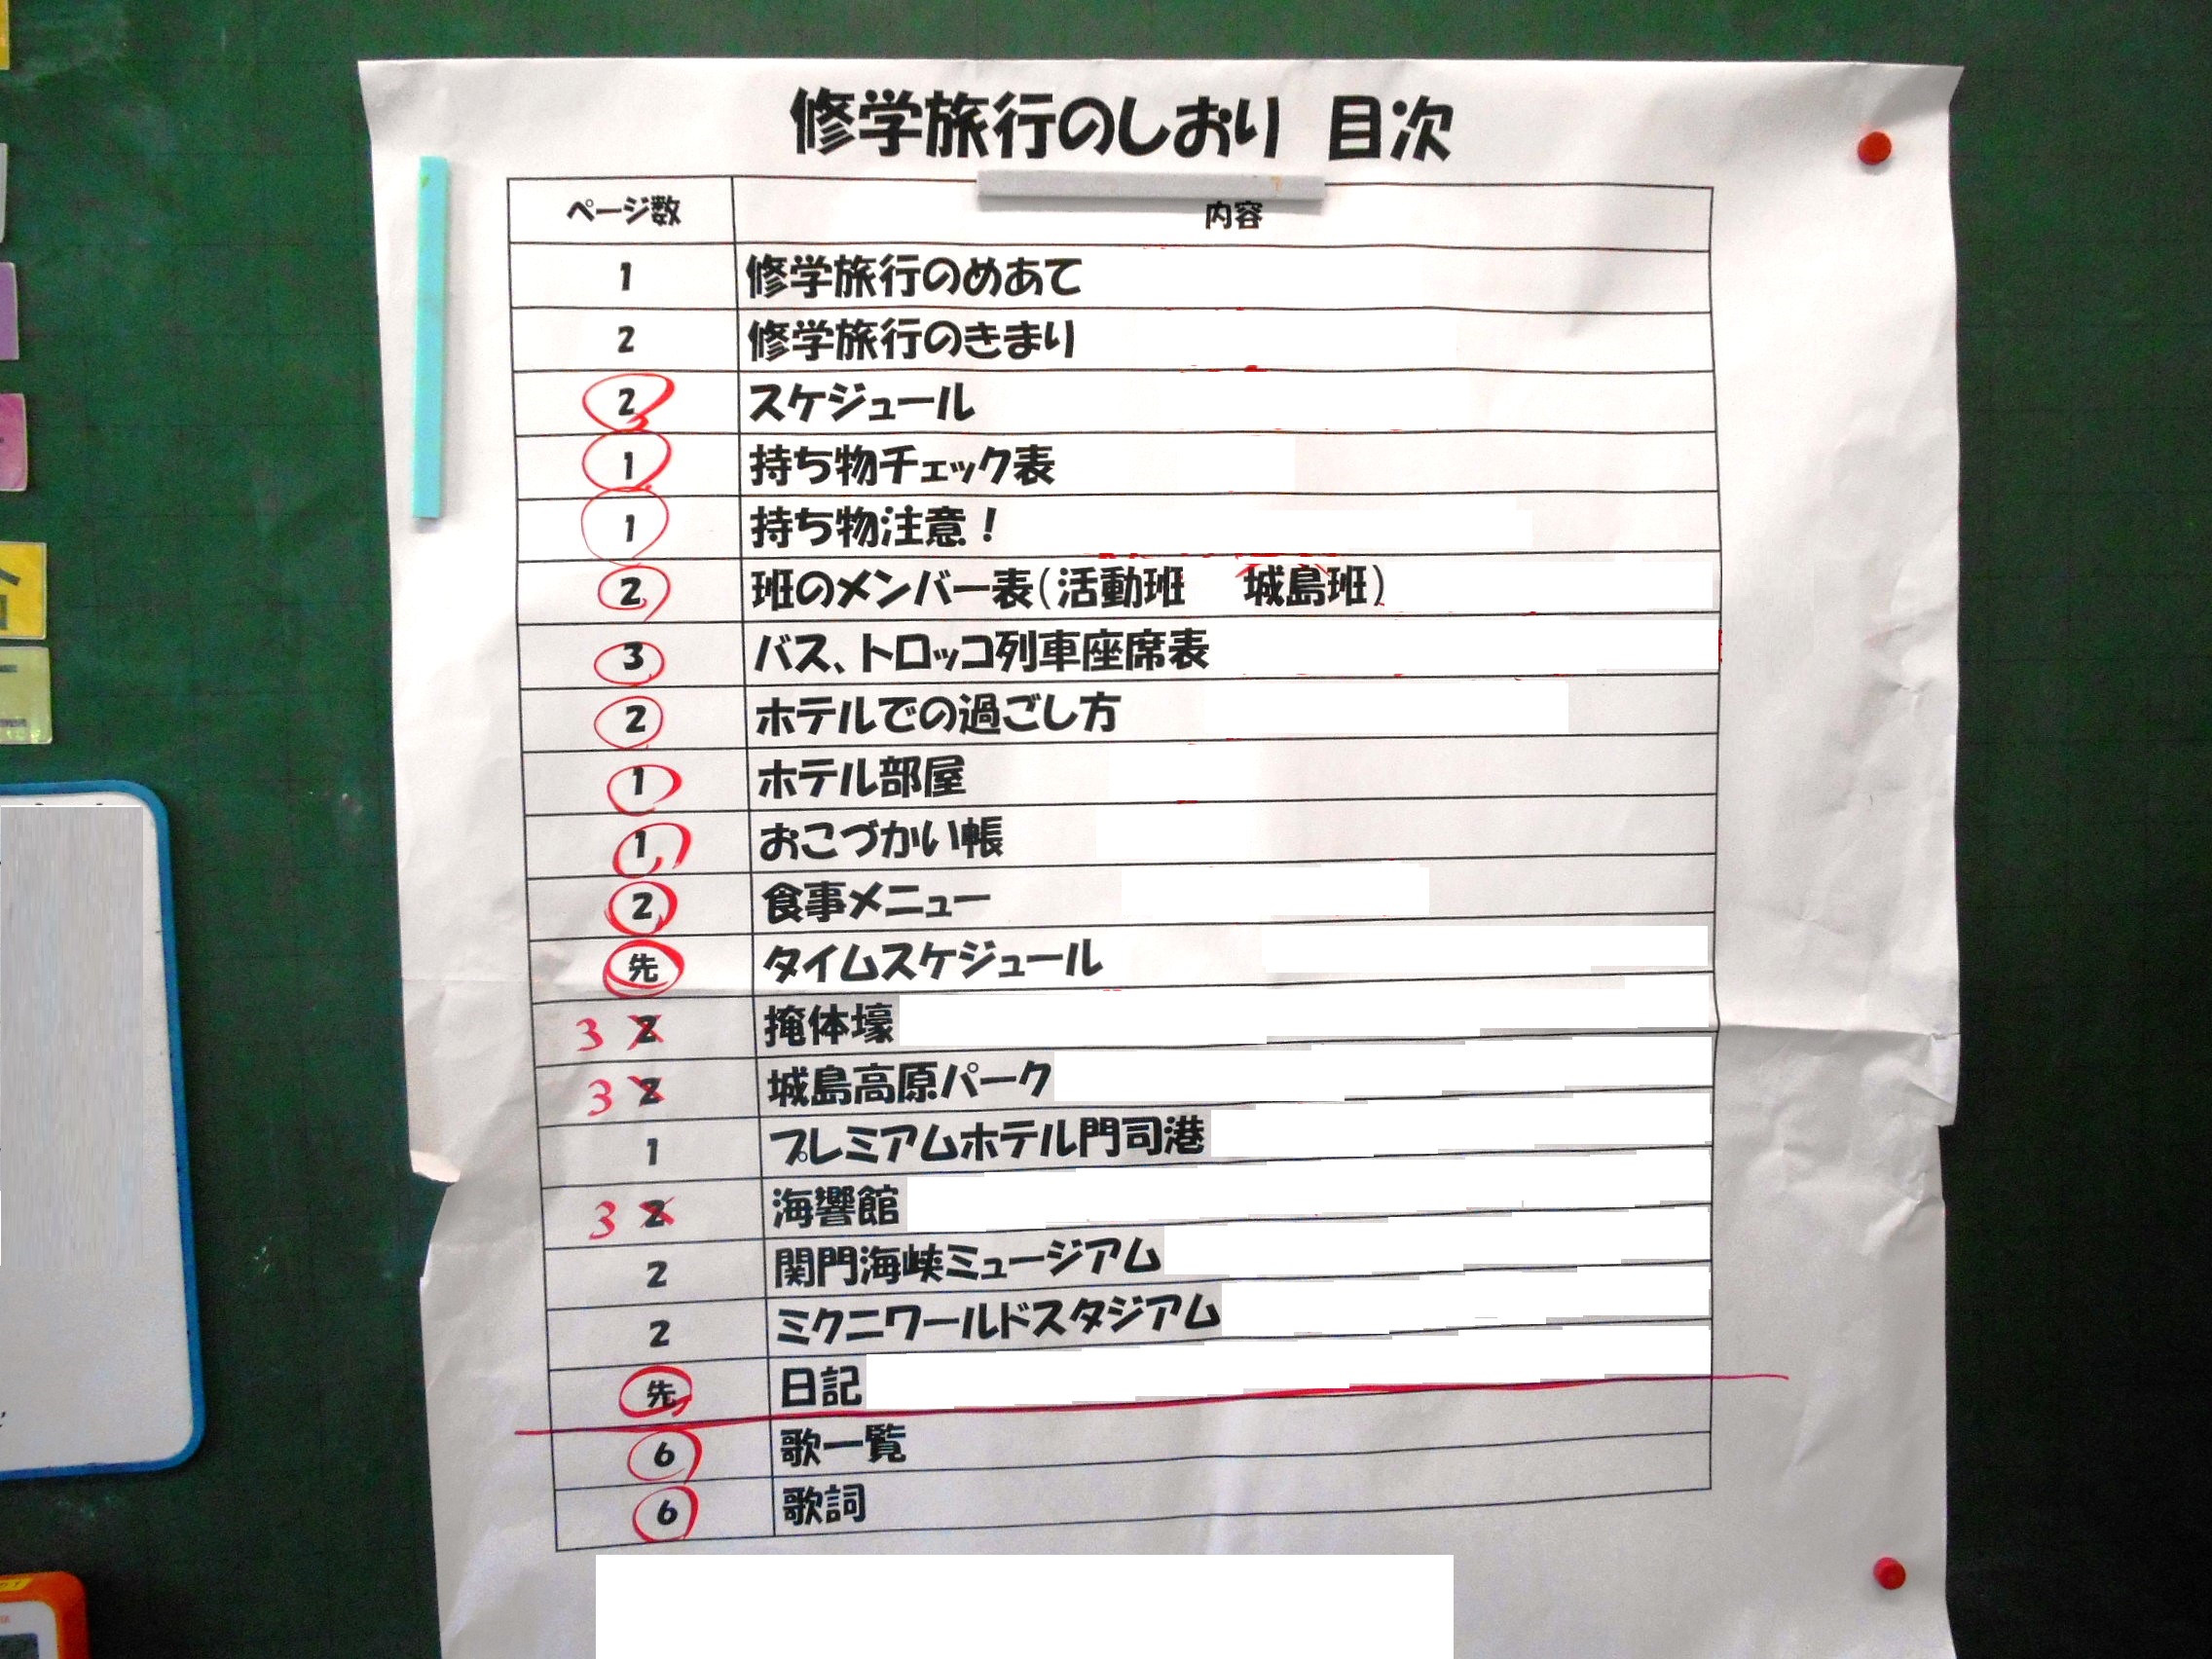 修学旅行のしおり 目次
ページ数 内容
1 修学旅行のめあて
2 修学旅行のきまり
2 スケジュール
1 持ち物チェック表
1 持ち物注意！
2 班のメンバー表（活動班 城島班）
3 バス、トロッコ列車座席表
2 ホテルでの過ごし方
1 ホテル部屋
1 おこづかい帳
2 食事メニュー
先 タイムスケジュール
3 2 掩体壕
3 2 城島高原パーク
1 プレミアムホテル門司港
3 2 海響館
2 関門海峡ミュージアム
2 ミクニワールドスタジアム
先 日記
6 歌一覧
6 歌詞